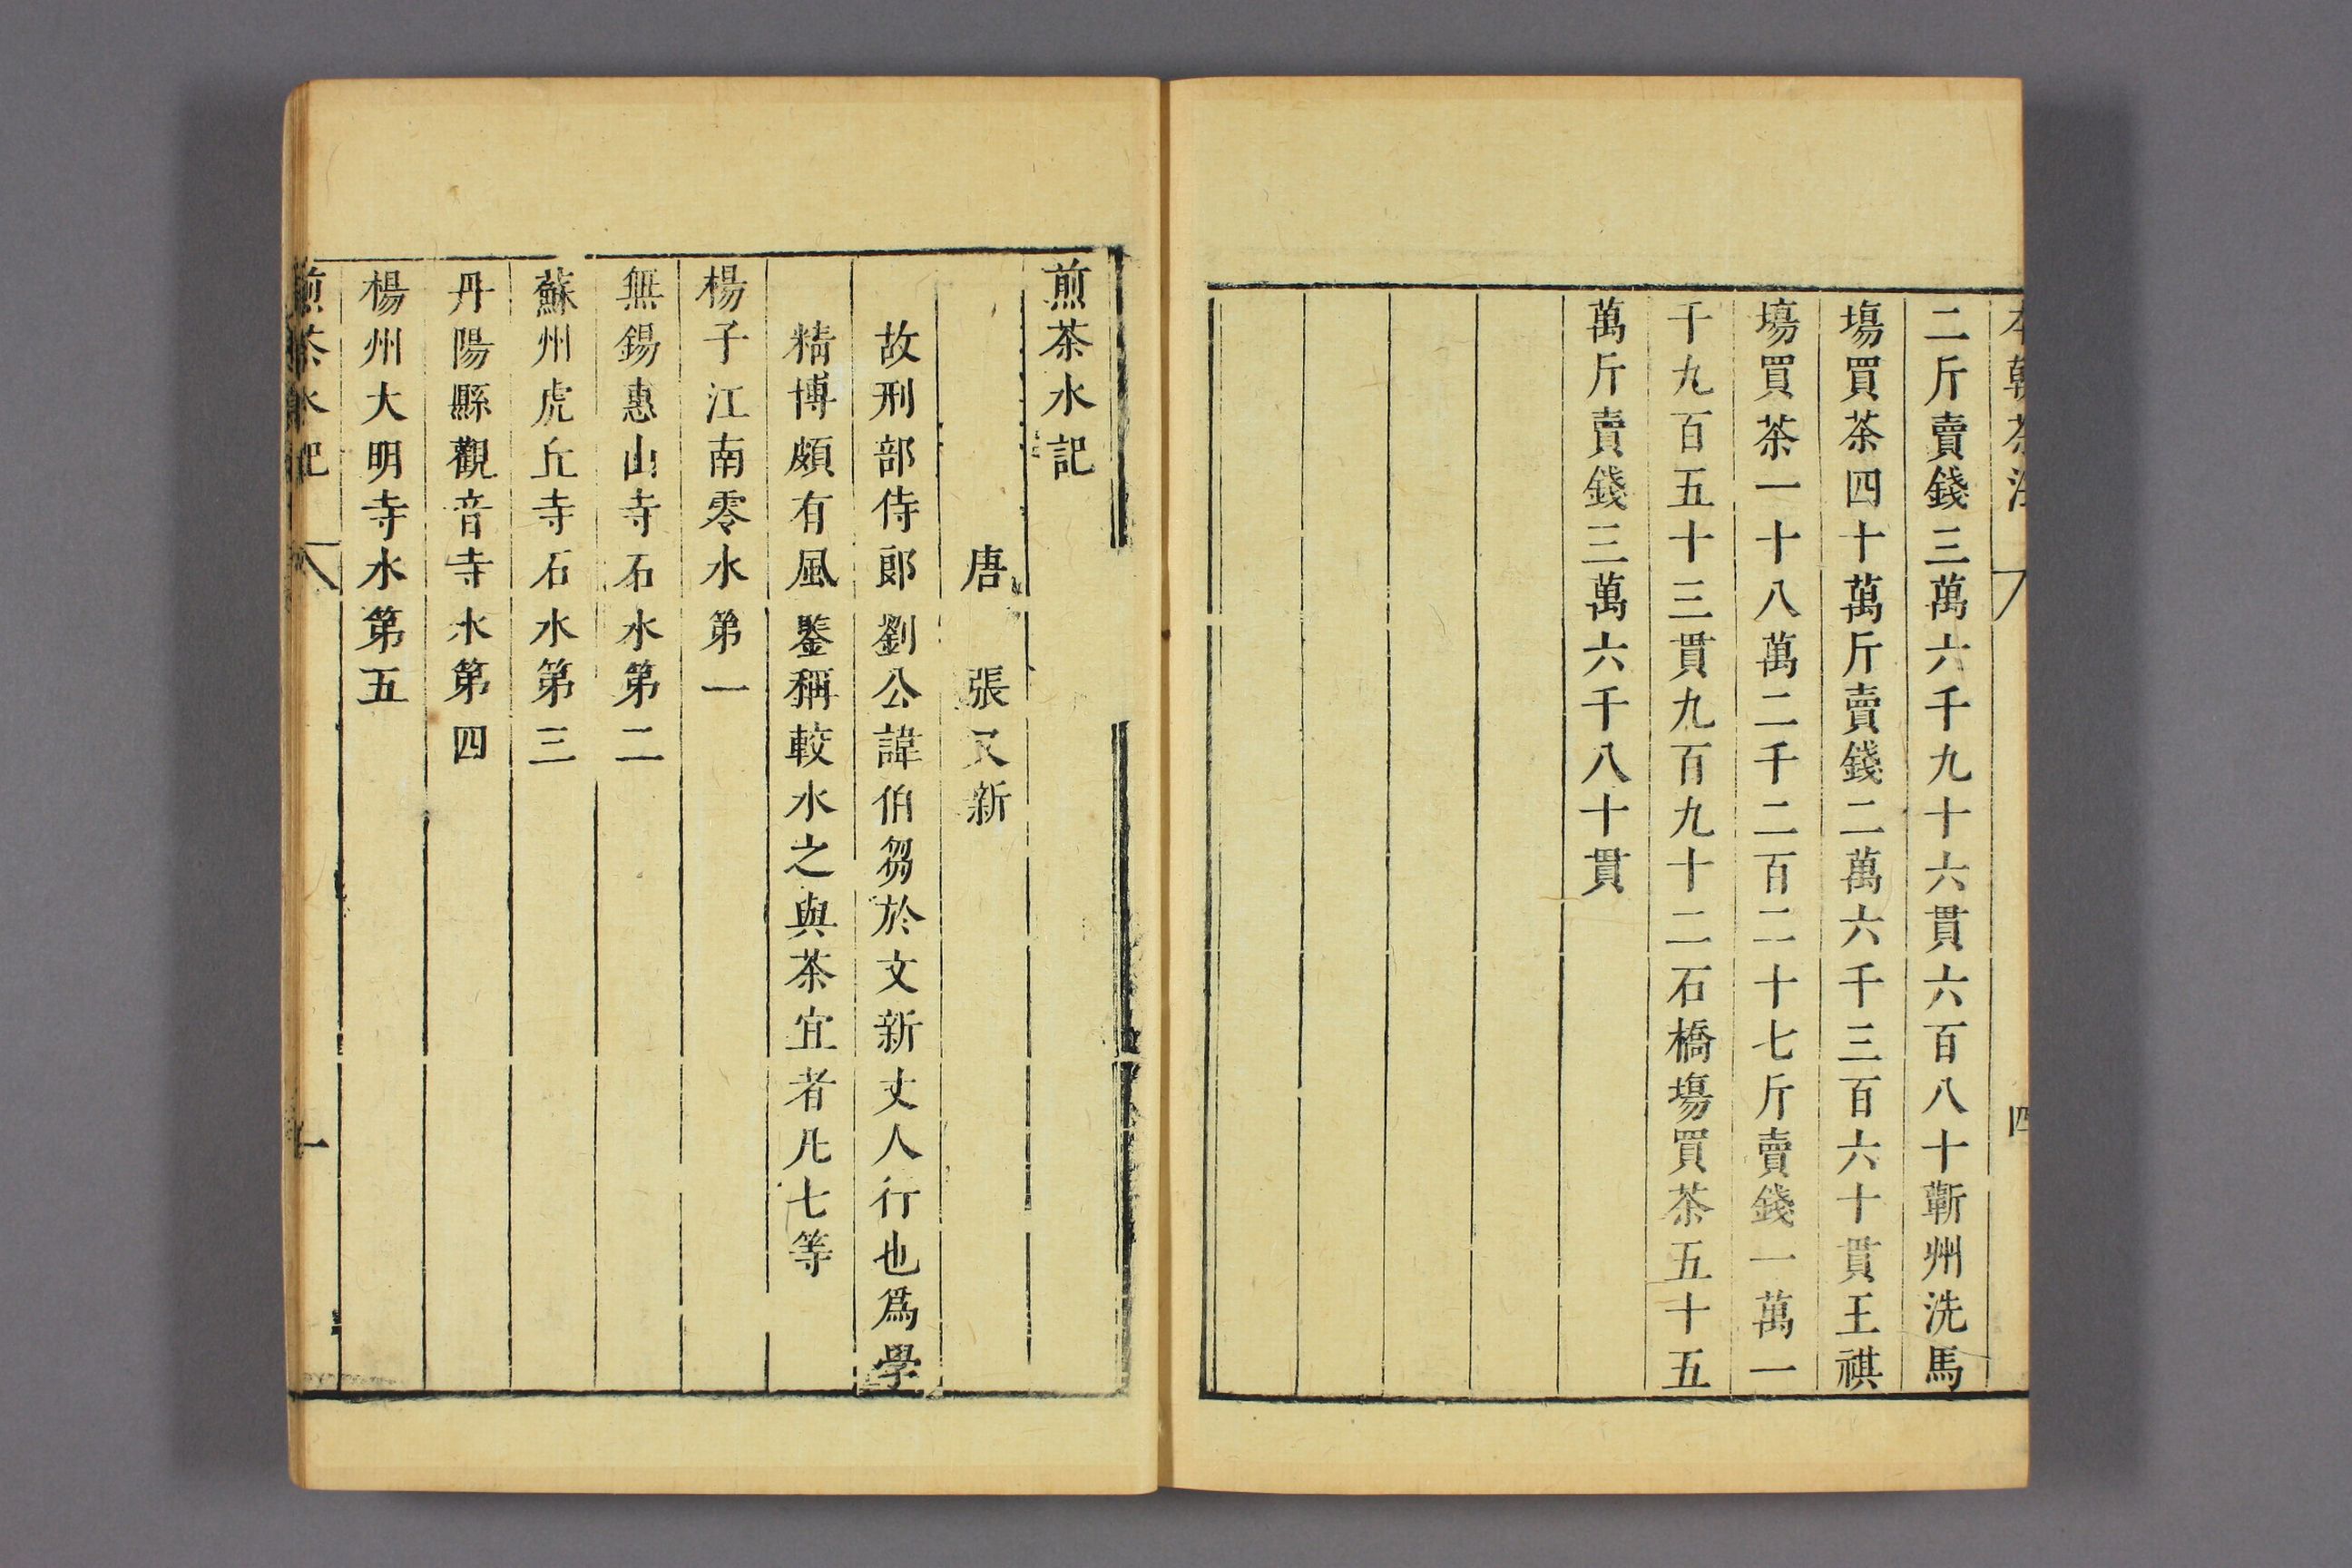 本朝茶法 四
二斤賣錢三萬六千九十六貫六百八十蘄州洗馬
塲買茶四十萬斤賣錢二萬六千三百六十貫王祺
塲買茶一十八萬二千二百二十七斤賣錢一萬一
千九百五十三貫九百九十二石橋塲買茶五十五
萬斤賣錢三萬六千八十貫
煎茶水記
唐 張又新
故刑部侍郎劉公諱伯芻於文新丈人行也爲學
精博頗有風鑒稱較水之與茶宜者凡七等
楊子江南零水第一
無錫惠山寺石水第二
蘇州虎丘寺石水第三
丹陽縣觀音寺水第四
楊州大明寺水第五
煎茶水記 一